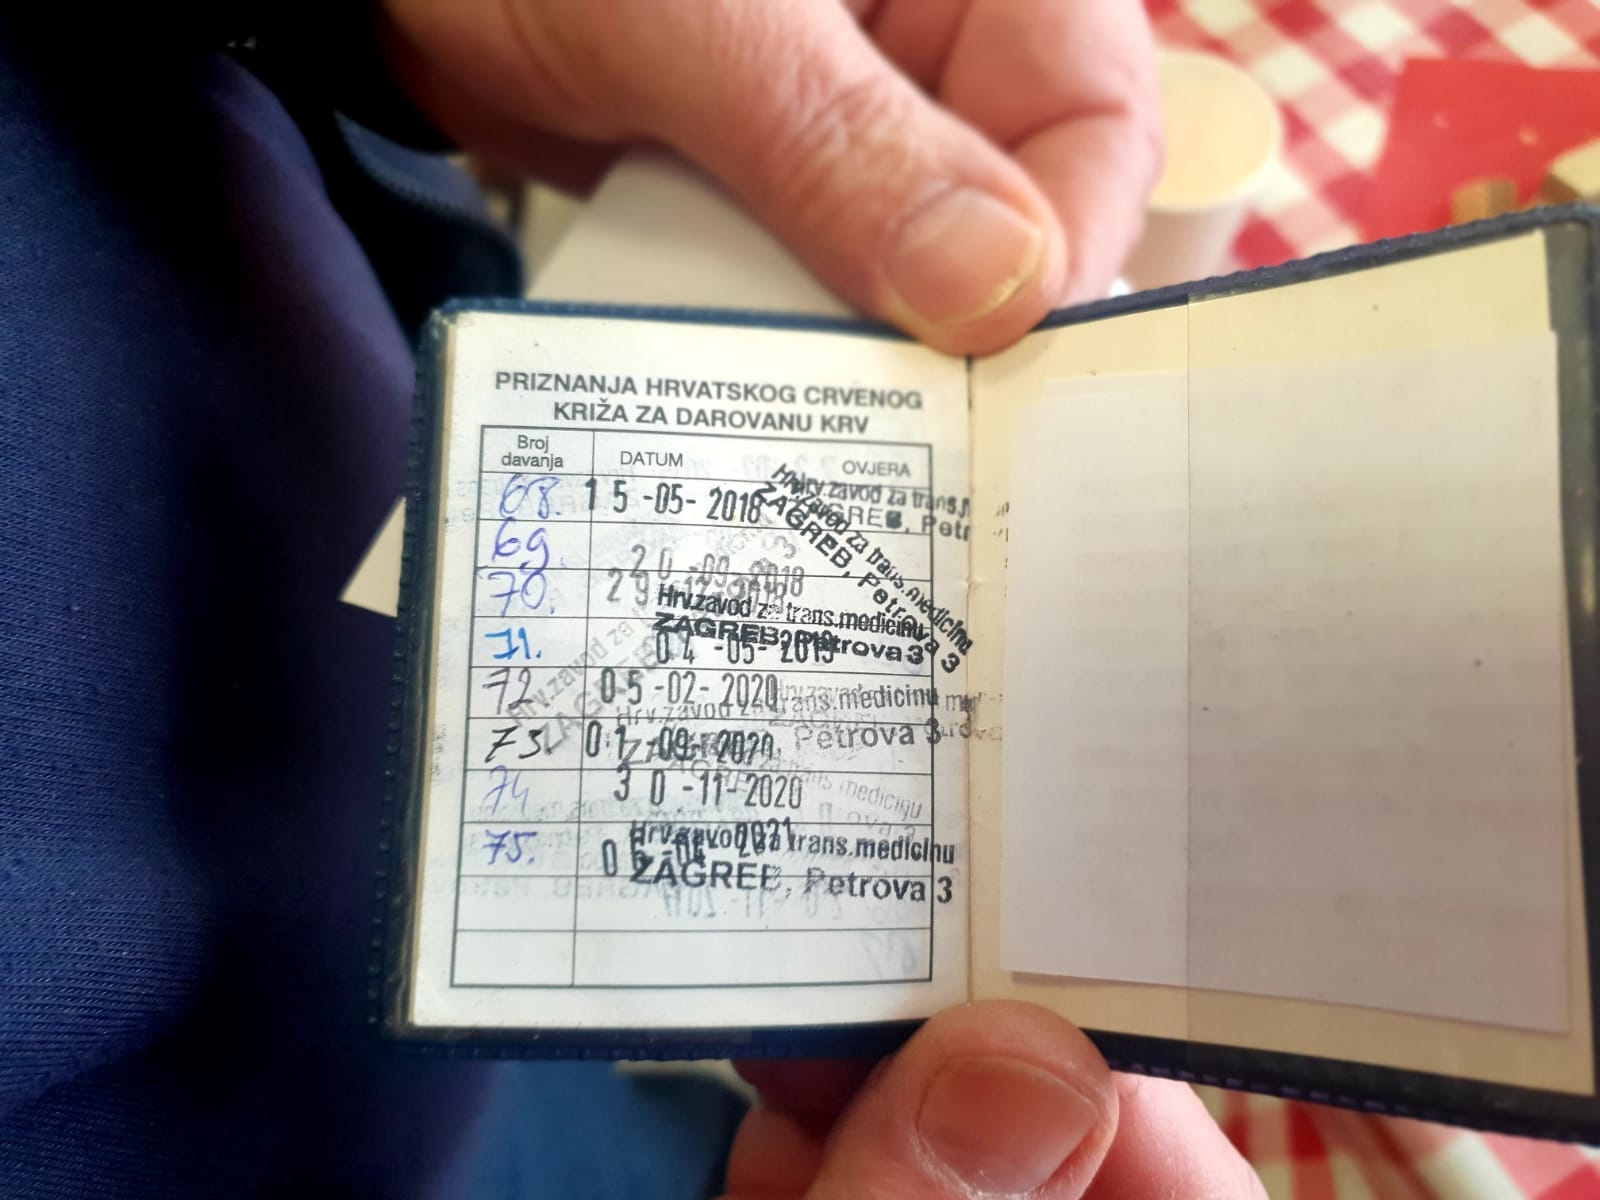 PRIZNANJA HRVATSKOG CRVENOG
KRIŽA ZA DAROVANU KRV
Broj davanja DATUM OVJERA
68. 15-05-2018 Hrv.zavod za trans.
ZAGREB, Petr
Hrv.zavod za trans.medicinu
ZAGREB, Petrova 3
69. 20-09-2018
70. 29 2018
Hrv.zavod za trans.medicinu
ZAGREB, Petrova 3
71. 04-05-2019
72 05-02-2020
Hrv.zavod za trans.medicinu
Petrova 3
73. 01-09-2020
74 30-11-2020
trans medicinu
75. 2021
Hrv.zavod za trans.medicinu
ZAGREB, Petrova 3